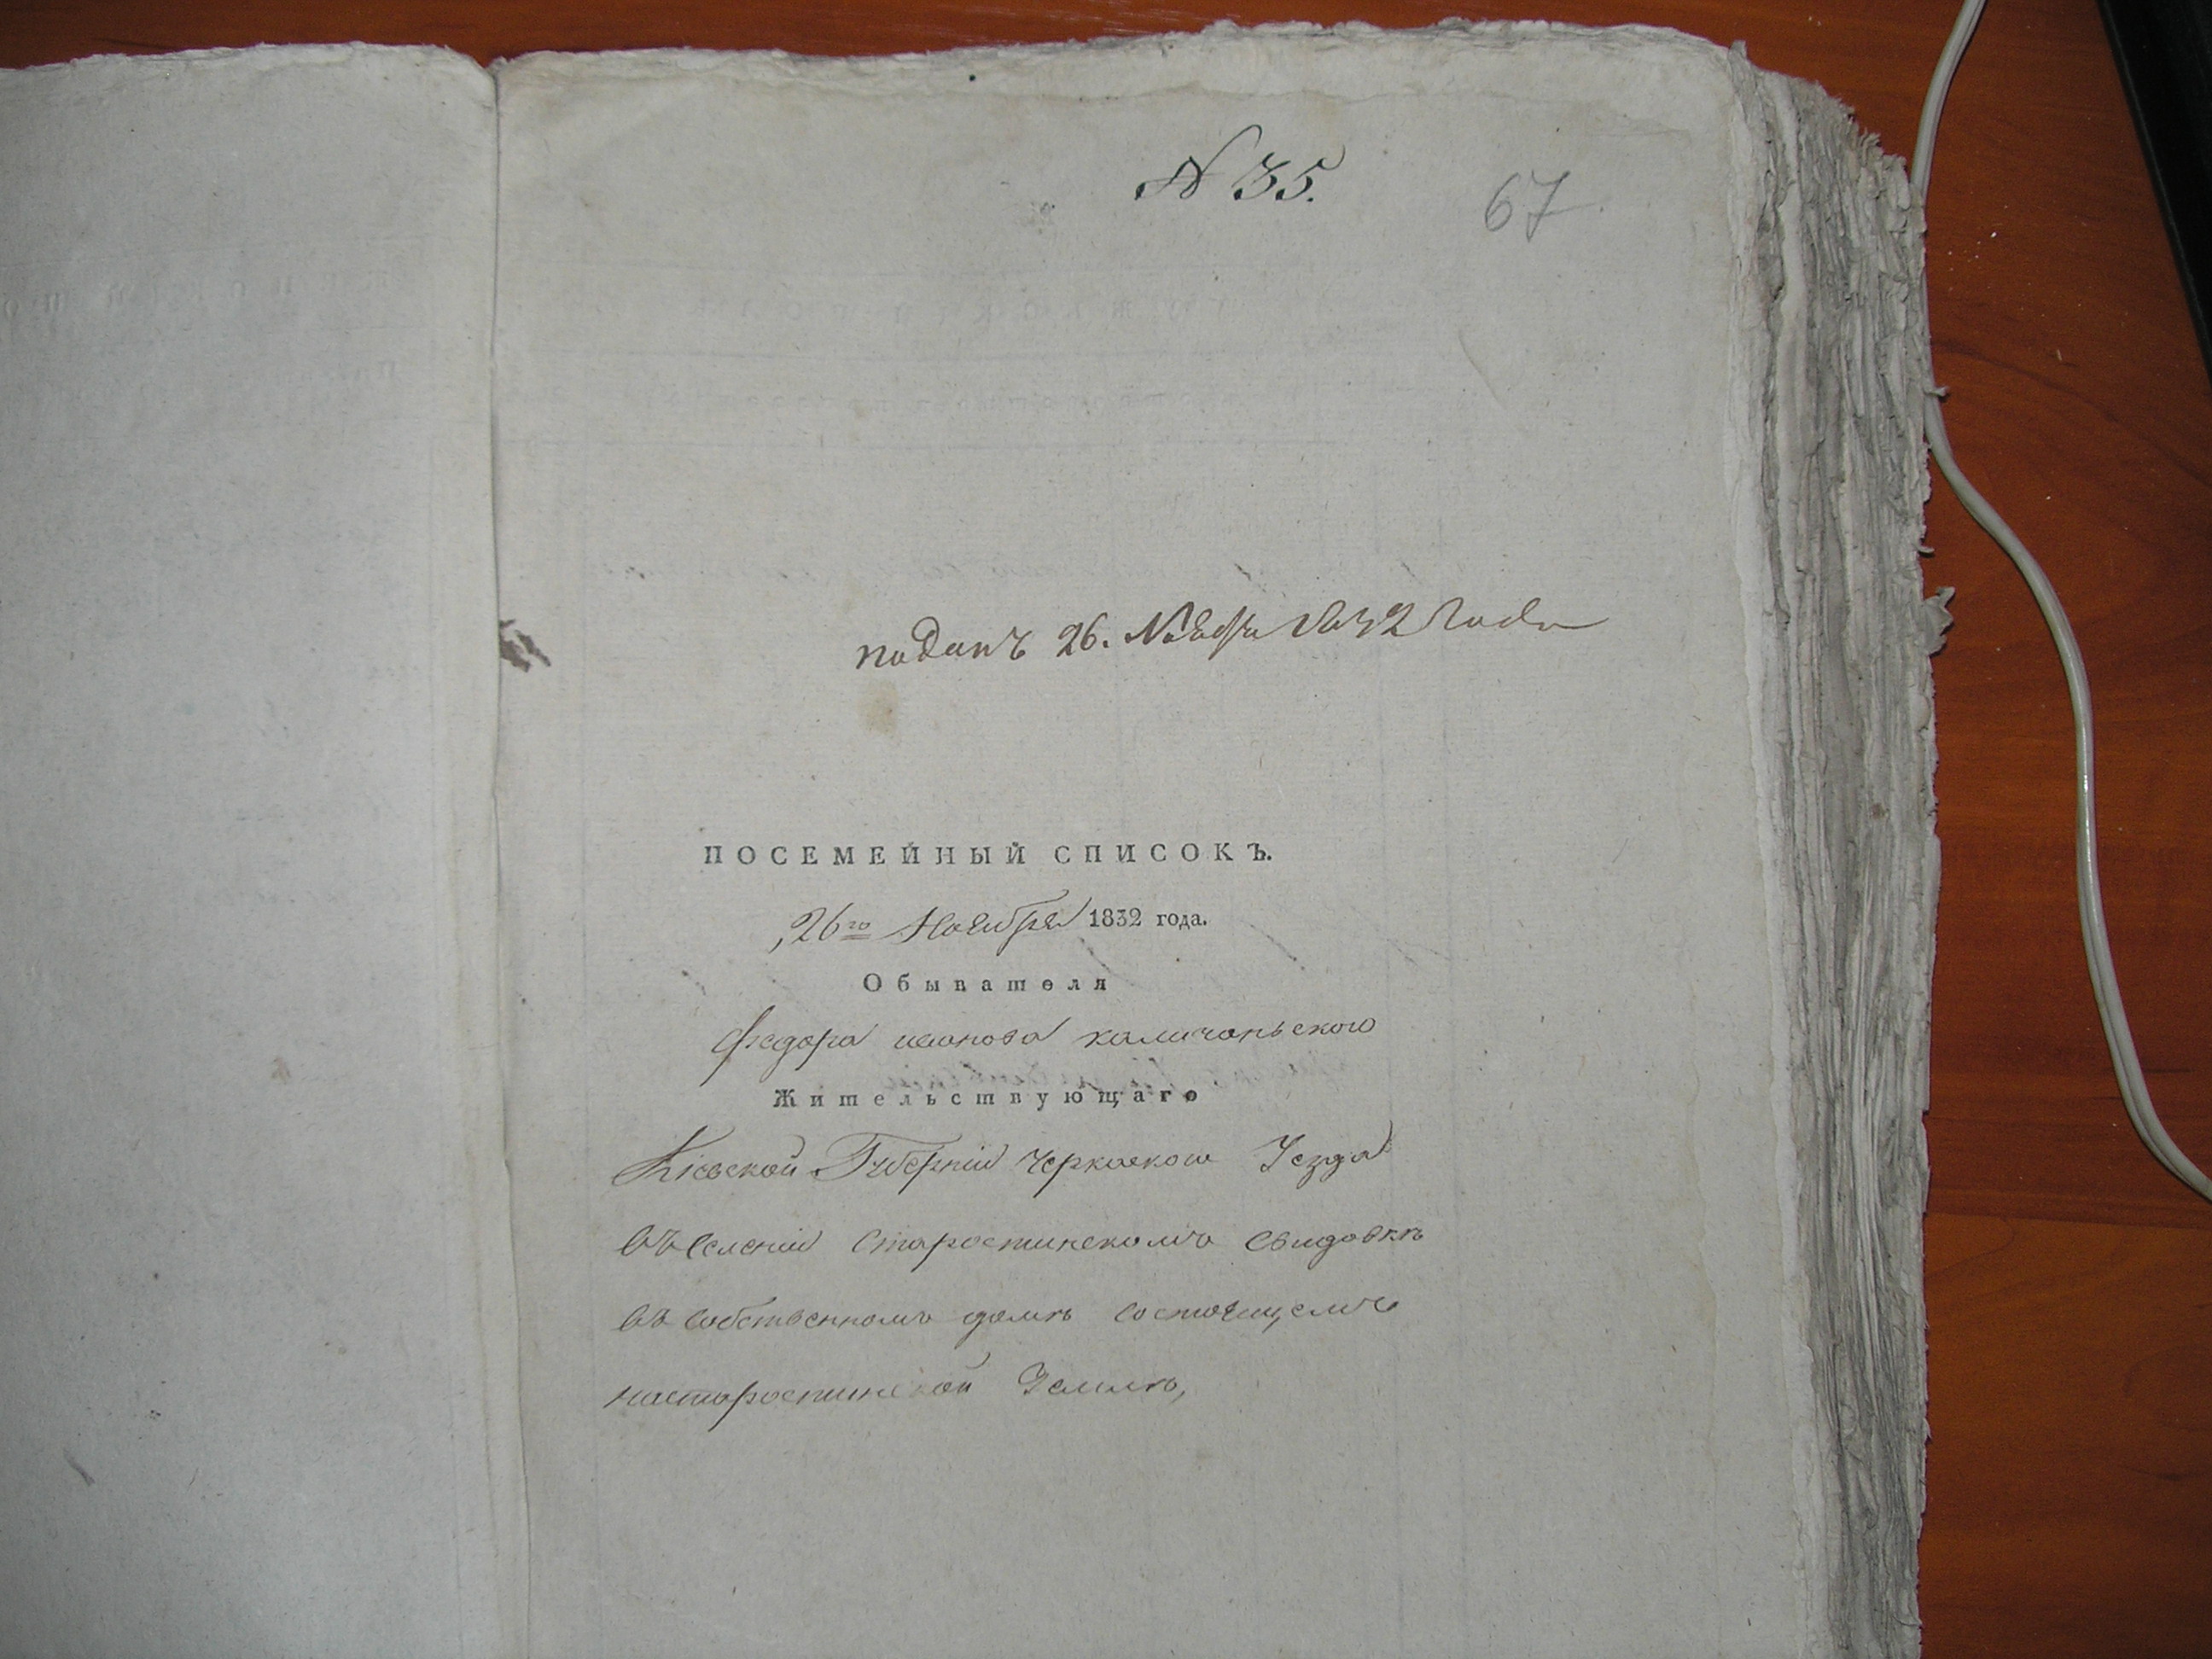 N 35.
67
поданъ 26. Ноября 1832 Года
ПОСЕМЕЙНЫЙ СПИСОКЪ.
26го Ноября 1832 года.
Обывателя
Федора иванова каличаньского
Жительствующаго
Кіевской Губерніи Черкаского Уезда
въ селеніи Старостинскомъ Свидовкѣ
въ собственномъ домѣ состоящемъ
настаростинской Землѣ,